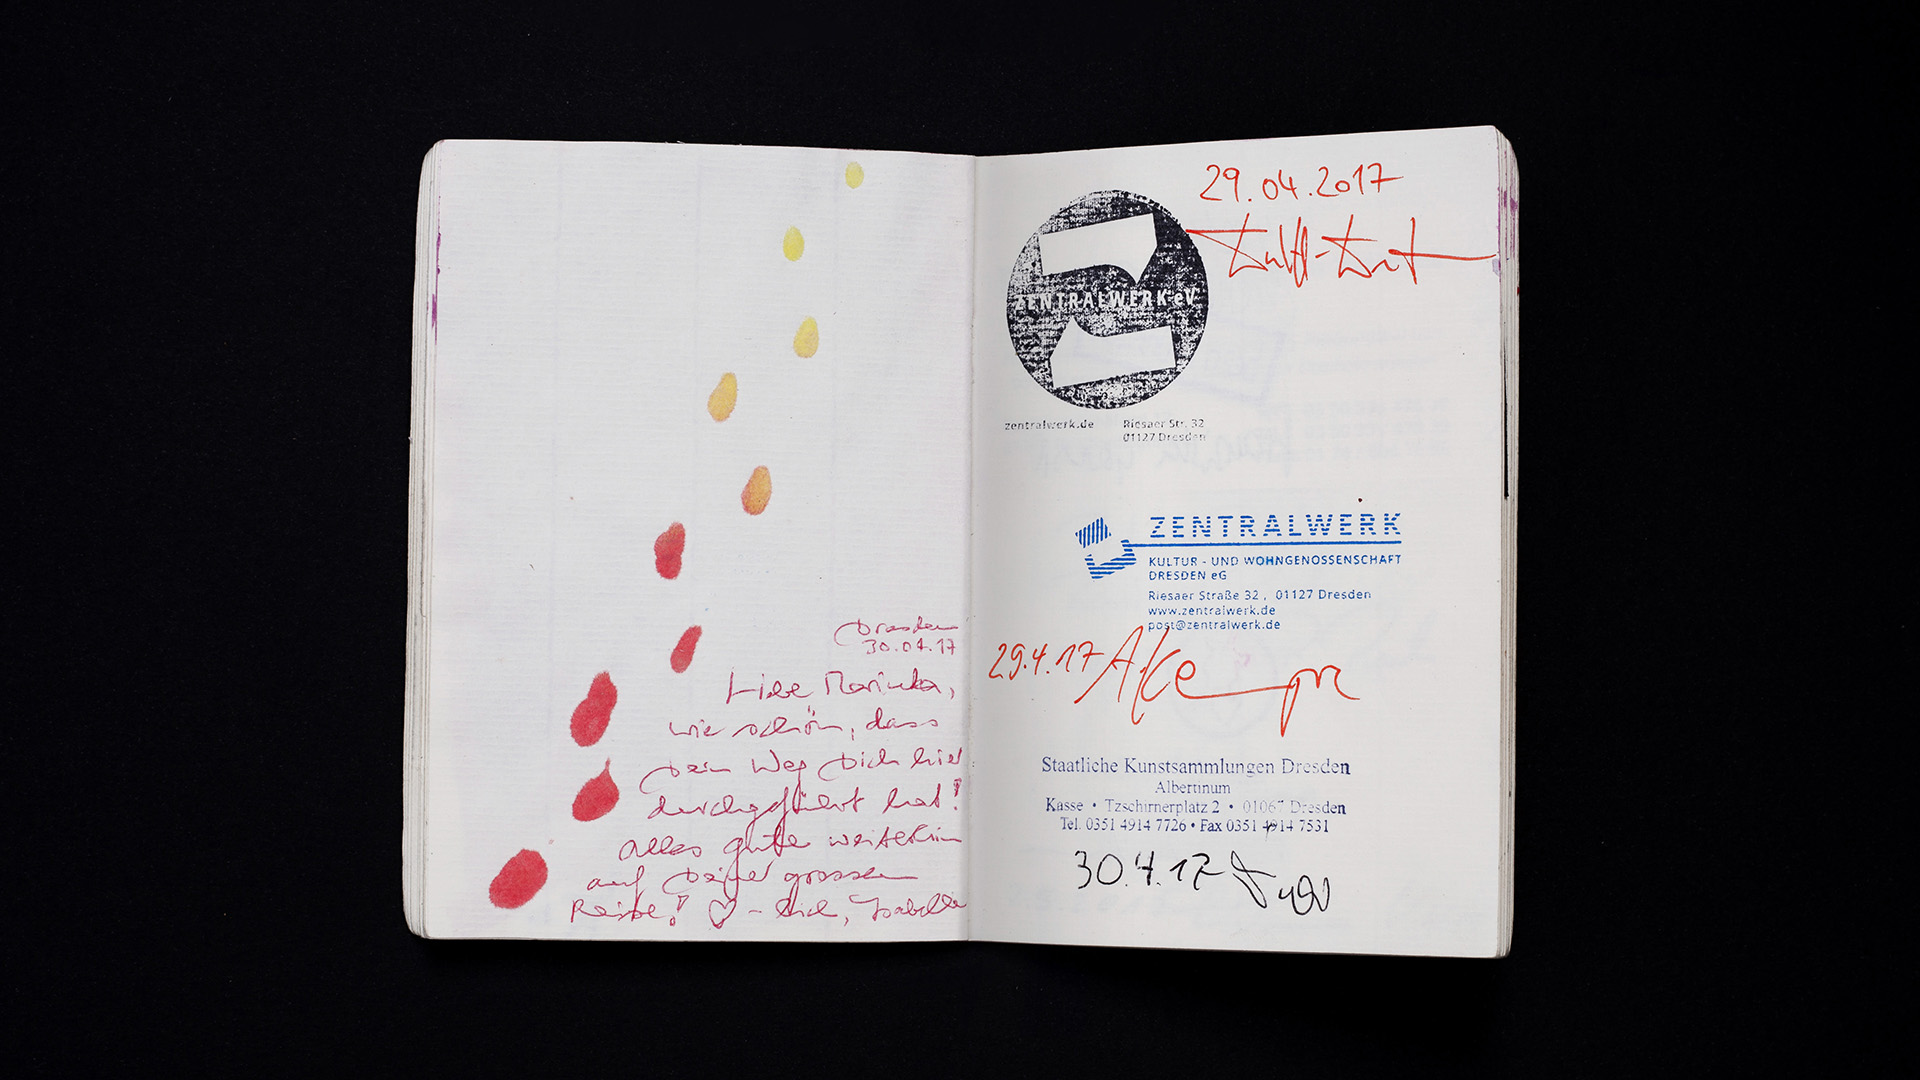 Dresden
30.04.17
Liebe Marinka,
wie schön, dass
Dein Weg Dich hier
durchgeführt hat!
alles gute weiterhin
auf Deiner grossen
Reise! ♡ - lich, Isabelle
29.04.2017
ZENTRALWERK eV
zentralwerk.de
Riesaer Str. 32
01127 Dresden
ZENTRALWERK
KULTUR - UND WOHNGENOSSENSCHAFT
DRESDEN eG
Riesaer Straße 32 , 01127 Dresden
www.zentralwerk.de
post@zentralwerk.de
29.4.17
Staatliche Kunstsammlungen Dresden
Albertinum
Kasse • Tzschirnerplatz 2 • 01067 Dresden
Tel. 0351 4914 7726 • Fax 0351 4914 7531
30.4.17